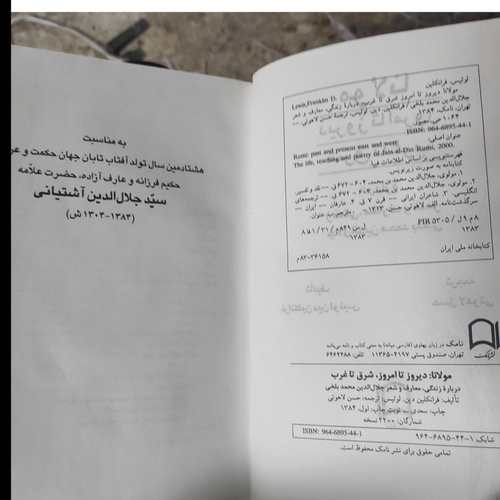 به مناسبت
هشتادمین سال تولد آفتاب تابان جهان حکمت و
حکیم فرزانه و عارف آزاده، حضرت علّامه
سیّد جلال‌الدین آشتیانی
(۱۳۸۴-۱۳۰۴ ش)
لوئیس، فرانکلین
Lewis, Franklin D.
مولانا دیروز تا امروز شرق تا غرب، دربارهٔ زندگی، معارف و شعر
جلال‌الدین محمد بلخی / فرانکلین دین. لوئیس، ترجمهٔ حسن لاهوتی. --
تهران، نامک، ۱۳۸۴.
۱۰۶۴ ص. مصور.
ISBN: 964-6895-44-1
عنوان اصلی:
Rumi: past and present east and west:
The life, teaching and poetry of Jala al-Din Rumi, 2000.
فهرستنویسی بر اساس اطلاعات فیپا.
کتابنامه به صورت زیرنویس.
۱. مولوی، جلال‌الدین محمد بن محمد، ۶۰۴-۶۷۲ ق. -- نقد و تفسیر.
۲. مولوی، جلال‌الدین محمد بن محمد، ۶۰۴-۶۷۲ ق. -- ترجمه‌های
انگلیسی. ۳. شاعران ایرانی -- قرن ۷ ق. ۴. عارفان -- ایران --
سرگذشت‌نامه. الف. لاهوتی، حسن، ۱۳۲۳- مترجم. ب. عنوان.
PIR ۵۳۰۵ / ل ۹ م ۸
۱۳۸۳
۱ فا ۸ / ۳۱
۱۳۸۳
کتابخانه ملی ایران
۸۳-۳۶۱۵۸ م
نامک در زبان پهلوی (فارسی میانه) به معنی کتاب و نامه می‌باشد
تهران، صندوق پستی ۴۱۹۷-۱۱۳۶۵ تلفن: ۶۴۶۴۲۸۸
مولانا: دیروز تا امروز، شرق تا غرب
دربارهٔ زندگی، معارف و شعر جلال‌الدین محمد بلخی
تألیف: فرانکلین دین. لوئیس؛ ترجمه: حسن لاهوتی
چاپ: سعدی -- نوبت چاپ: اول، ۱۳۸۴
شمارگان: ۲۲۰۰ نسخه
شابک ۱-۴۴-۶۸۹۵-۹۶۴ ISBN: 964-6895-44-1
تمامی حقوق برای نشر نامک محفوظ است.